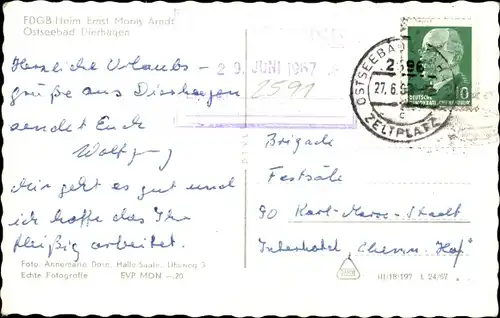 FDGB-Heim Ernst Moritz Arndt
Ostseebad Dierhagen
Herzliche Urlaubs-
grüße aus Dierhagen
sendet Euch
Wolfgang
Mir geht es gut und
ich hoffe das Ihr
fleißig arbeitet.
Foto: Annemarie Dorn, Halle-Saale, Uhuweg 3
Echte Fotografie EVP MDN —20
29. JUNI 1967
2591
OSTSEEBAD
2596
27.6.
c
ZELTPLATZ
DEUTSCHE
10
Brigade
Festsäle
90 Karl-Marx-Stadt
Interhotel „Chemn. Hof"
III/18/197 L 24/67